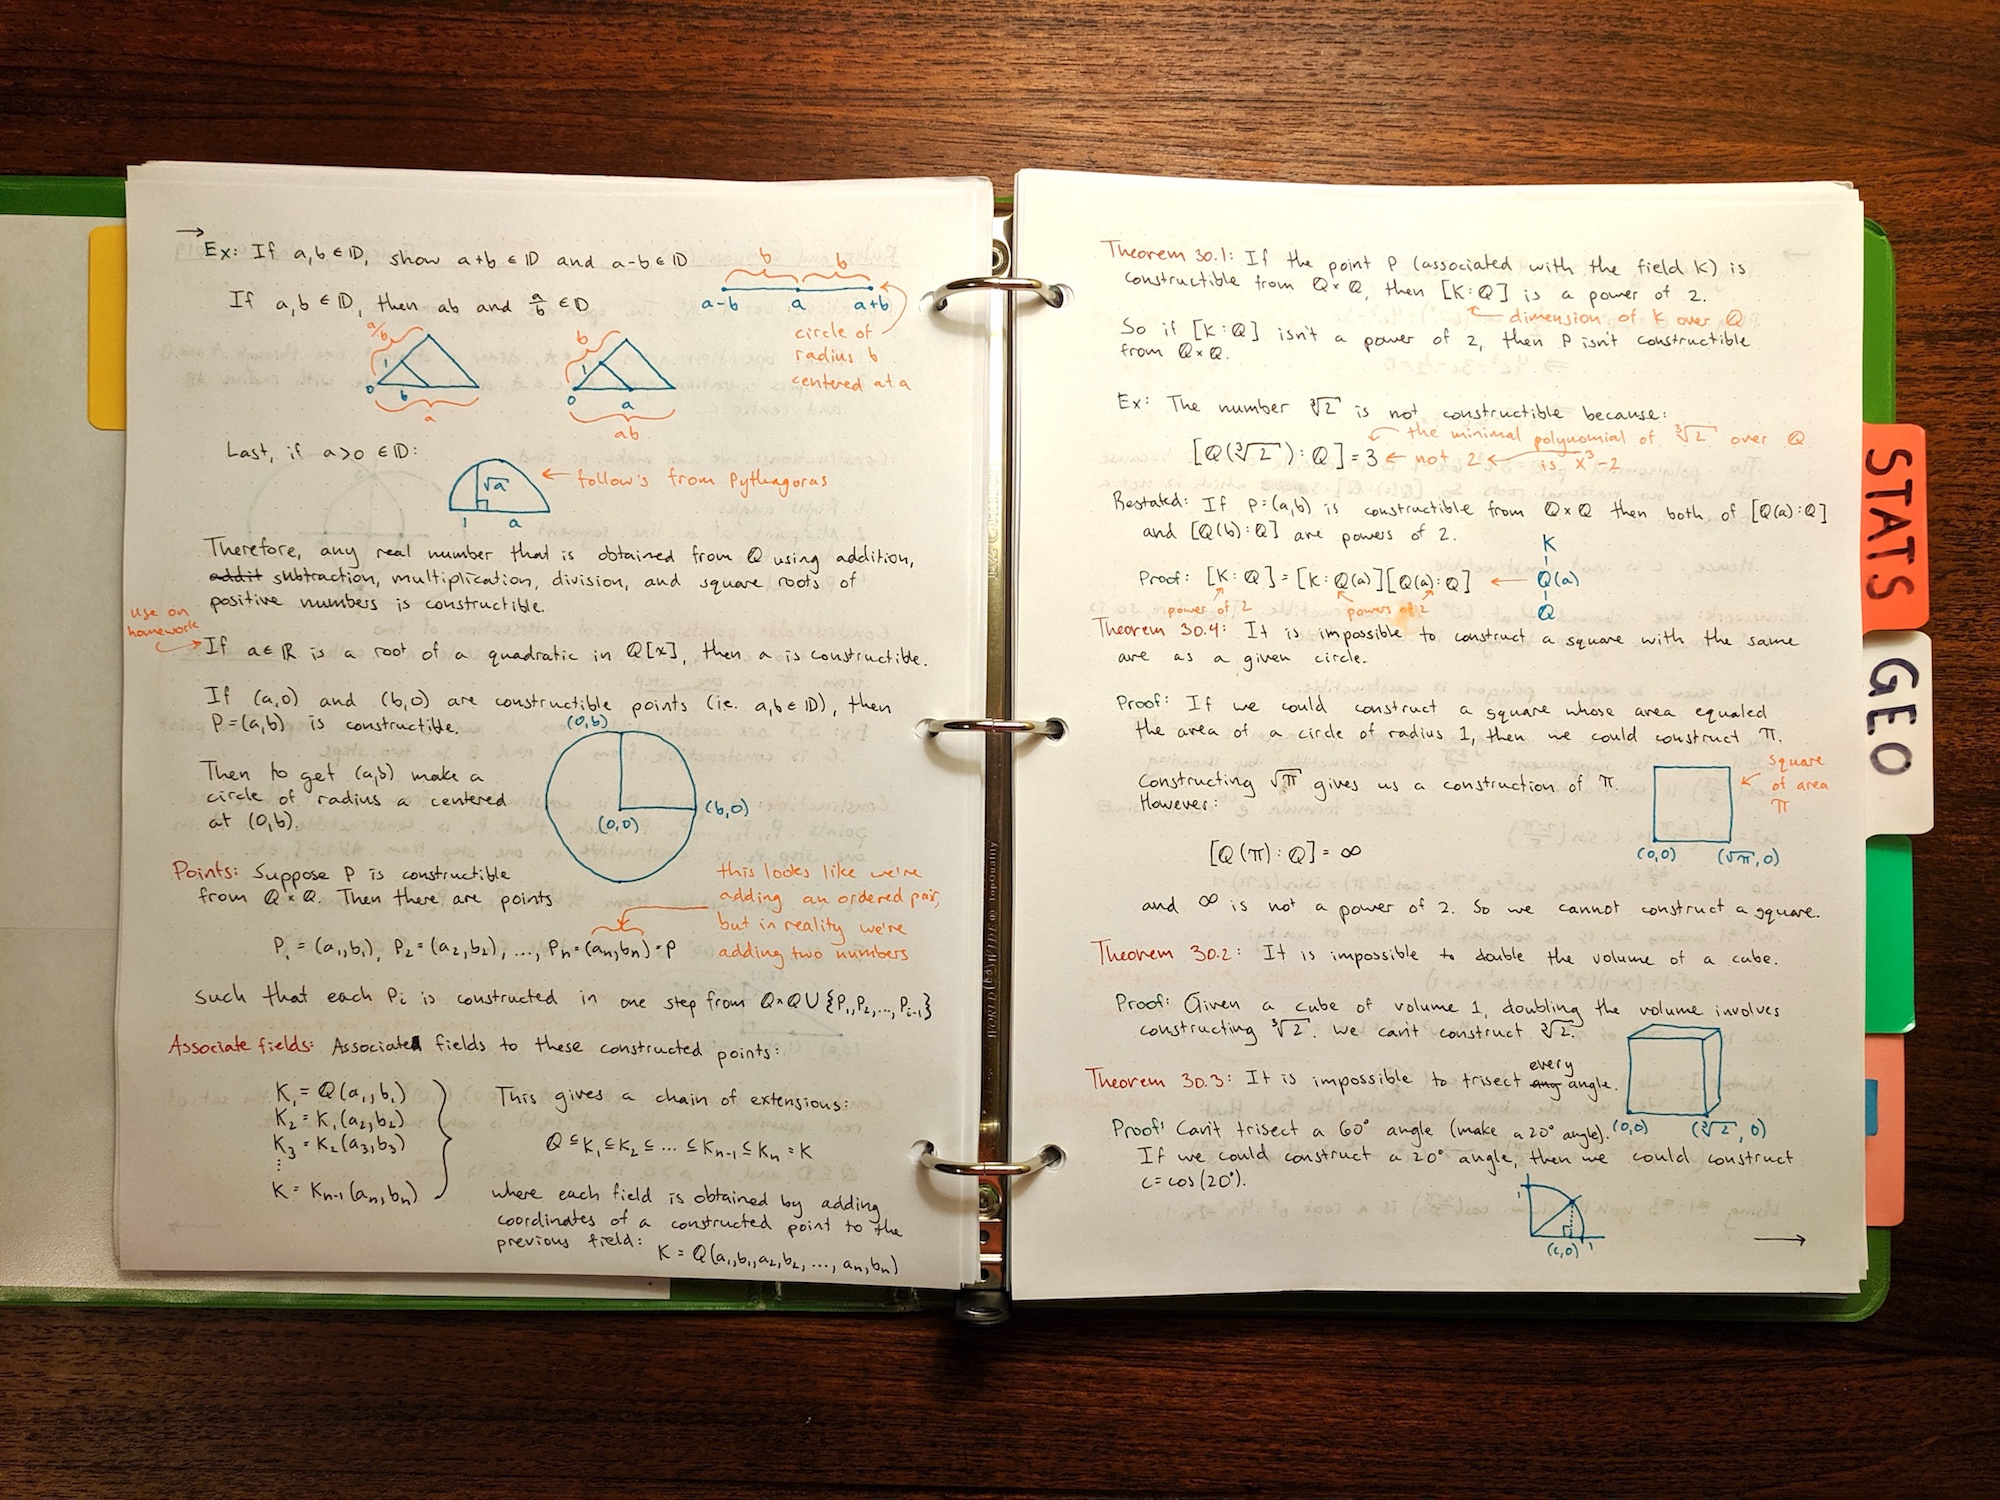 → Ex: If a,b ∈ D, show a+b ∈ D and a-b ∈ D
b b
a-b a a+b
If a,b ∈ D, then ab and a/b ∈ D
circle of
radius b
centered at a
a/b
1
0 b
a
b
1
0 a
ab
Last, if a>0 ∈ D:
√a
1 a
← follow's from Pythagoras
Therefore, any real number that is obtained from Q using addition,
addit subtraction, multiplication, division, and square roots of
positive numbers is constructible.
use on
homework
If a∈R is a root of a quadratic in Q[x], then a is constructible.
If (a,0) and (b,0) are constructible points (ie. a,b∈D), then
P=(a,b) is constructible.
(0,b)
(0,0)
(b,0)
Then to get (a,b) make a
circle of radius a centered
at (0,b).
Points: Suppose P is constructible
from Q×Q. Then there are points
this looks like we're
adding an ordered pair,
but in reality we're
adding two numbers
P₁ = (a₁,b₁), P₂ = (a₂,b₂), ..., Pn = (an,bn) = P
such that each Pi is constructed in one step from Q×Q∪{P₁,P₂,...,Pi-1}
Associate fields: Associate fields to these constructed points:
K₁ = Q(a₁,b₁)
K₂ = K₁(a₂,b₂)
K₃ = K₂(a₃,b₃)
⋮
K = Kn-1(an,bn)
This gives a chain of extensions:
Q ⊆ K₁ ⊆ K₂ ⊆ ... ⊆ Kn-1 ⊆ Kn = K
where each field is obtained by adding
coordinates of a constructed point to the
previous field:
K = Q(a₁,b₁,a₂,b₂, ..., an,bn)
Theorem 30.1: If the point P (associated with the field K) is
constructible from Q×Q, then [K:Q] is a power of 2.
dimension of K over Q
So if [K:Q] isn't a power of 2, then P isn't constructible
from Q×Q.
Ex: The number ∛2 is not constructible because:
[Q(∛2):Q] = 3 ← not 2
the minimal polynomial of ∛2 over Q
is x³-2
Restated: If P=(a,b) is constructible from Q×Q then both of [Q(a):Q]
and [Q(b):Q] are powers of 2.
Proof: [K:Q] = [K:Q(a)][Q(a):Q] ←
K
Q(a)
Q
power of 2
powers of 2
Theorem 30.4: It is impossible to construct a square with the same
are as a given circle.
Proof: If we could construct a square whose area equaled
the area of a circle of radius 1, then we could construct π.
Constructing √π gives us a construction of π.
However:
square
of area
π
(0,0) (√π,0)
[Q(π):Q] = ∞
and ∞ is not a power of 2. So we cannot construct a square.
Theorem 30.2: It is impossible to double the volume of a cube.
Proof: Given a cube of volume 1, doubling the volume involves
constructing ∛2. We can't construct ∛2.
Theorem 30.3: It is impossible to trisect any every angle.
(0,0) (∛2,0)
Proof: Can't trisect a 60° angle (make a 20° angle).
If we could construct a 20° angle, then we could construct
c=cos(20°).
1
(c,0) 1
→
STATS
GEO